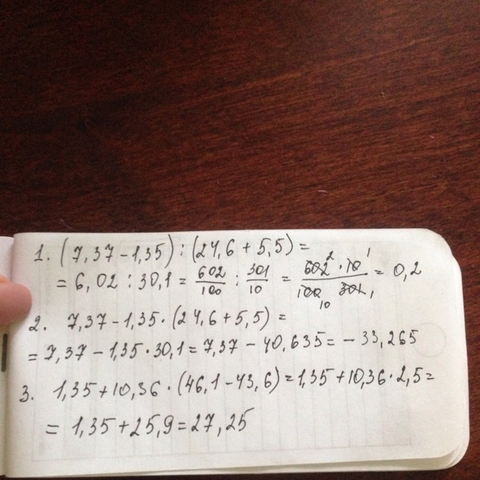 1. (7,37 - 1,35) : (24,6 + 5,5) =
= 6,02 : 30,1 = 602/100 : 301/10 = 602 2 · 10 1 / 100 10 301 1 = 0,2
2. 7,37 - 1,35 · (24,6 + 5,5) =
= 7,37 - 1,35 · 30,1 = 7,37 - 40,635 = - 33,265
3. 1,35 + 10,36 · (46,1 - 43,6) = 1,35 + 10,36 · 2,5 =
= 1,35 + 25,9 = 27,25